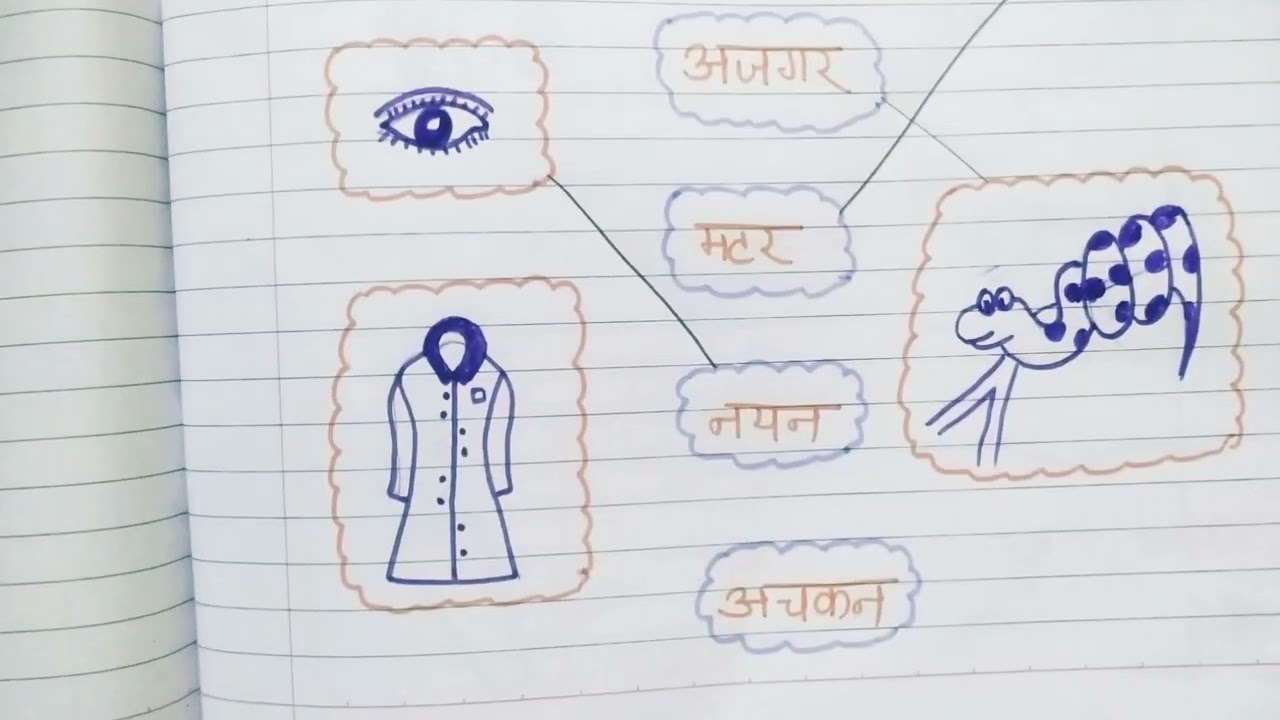 अजगर
मटर
नयन
अचकन